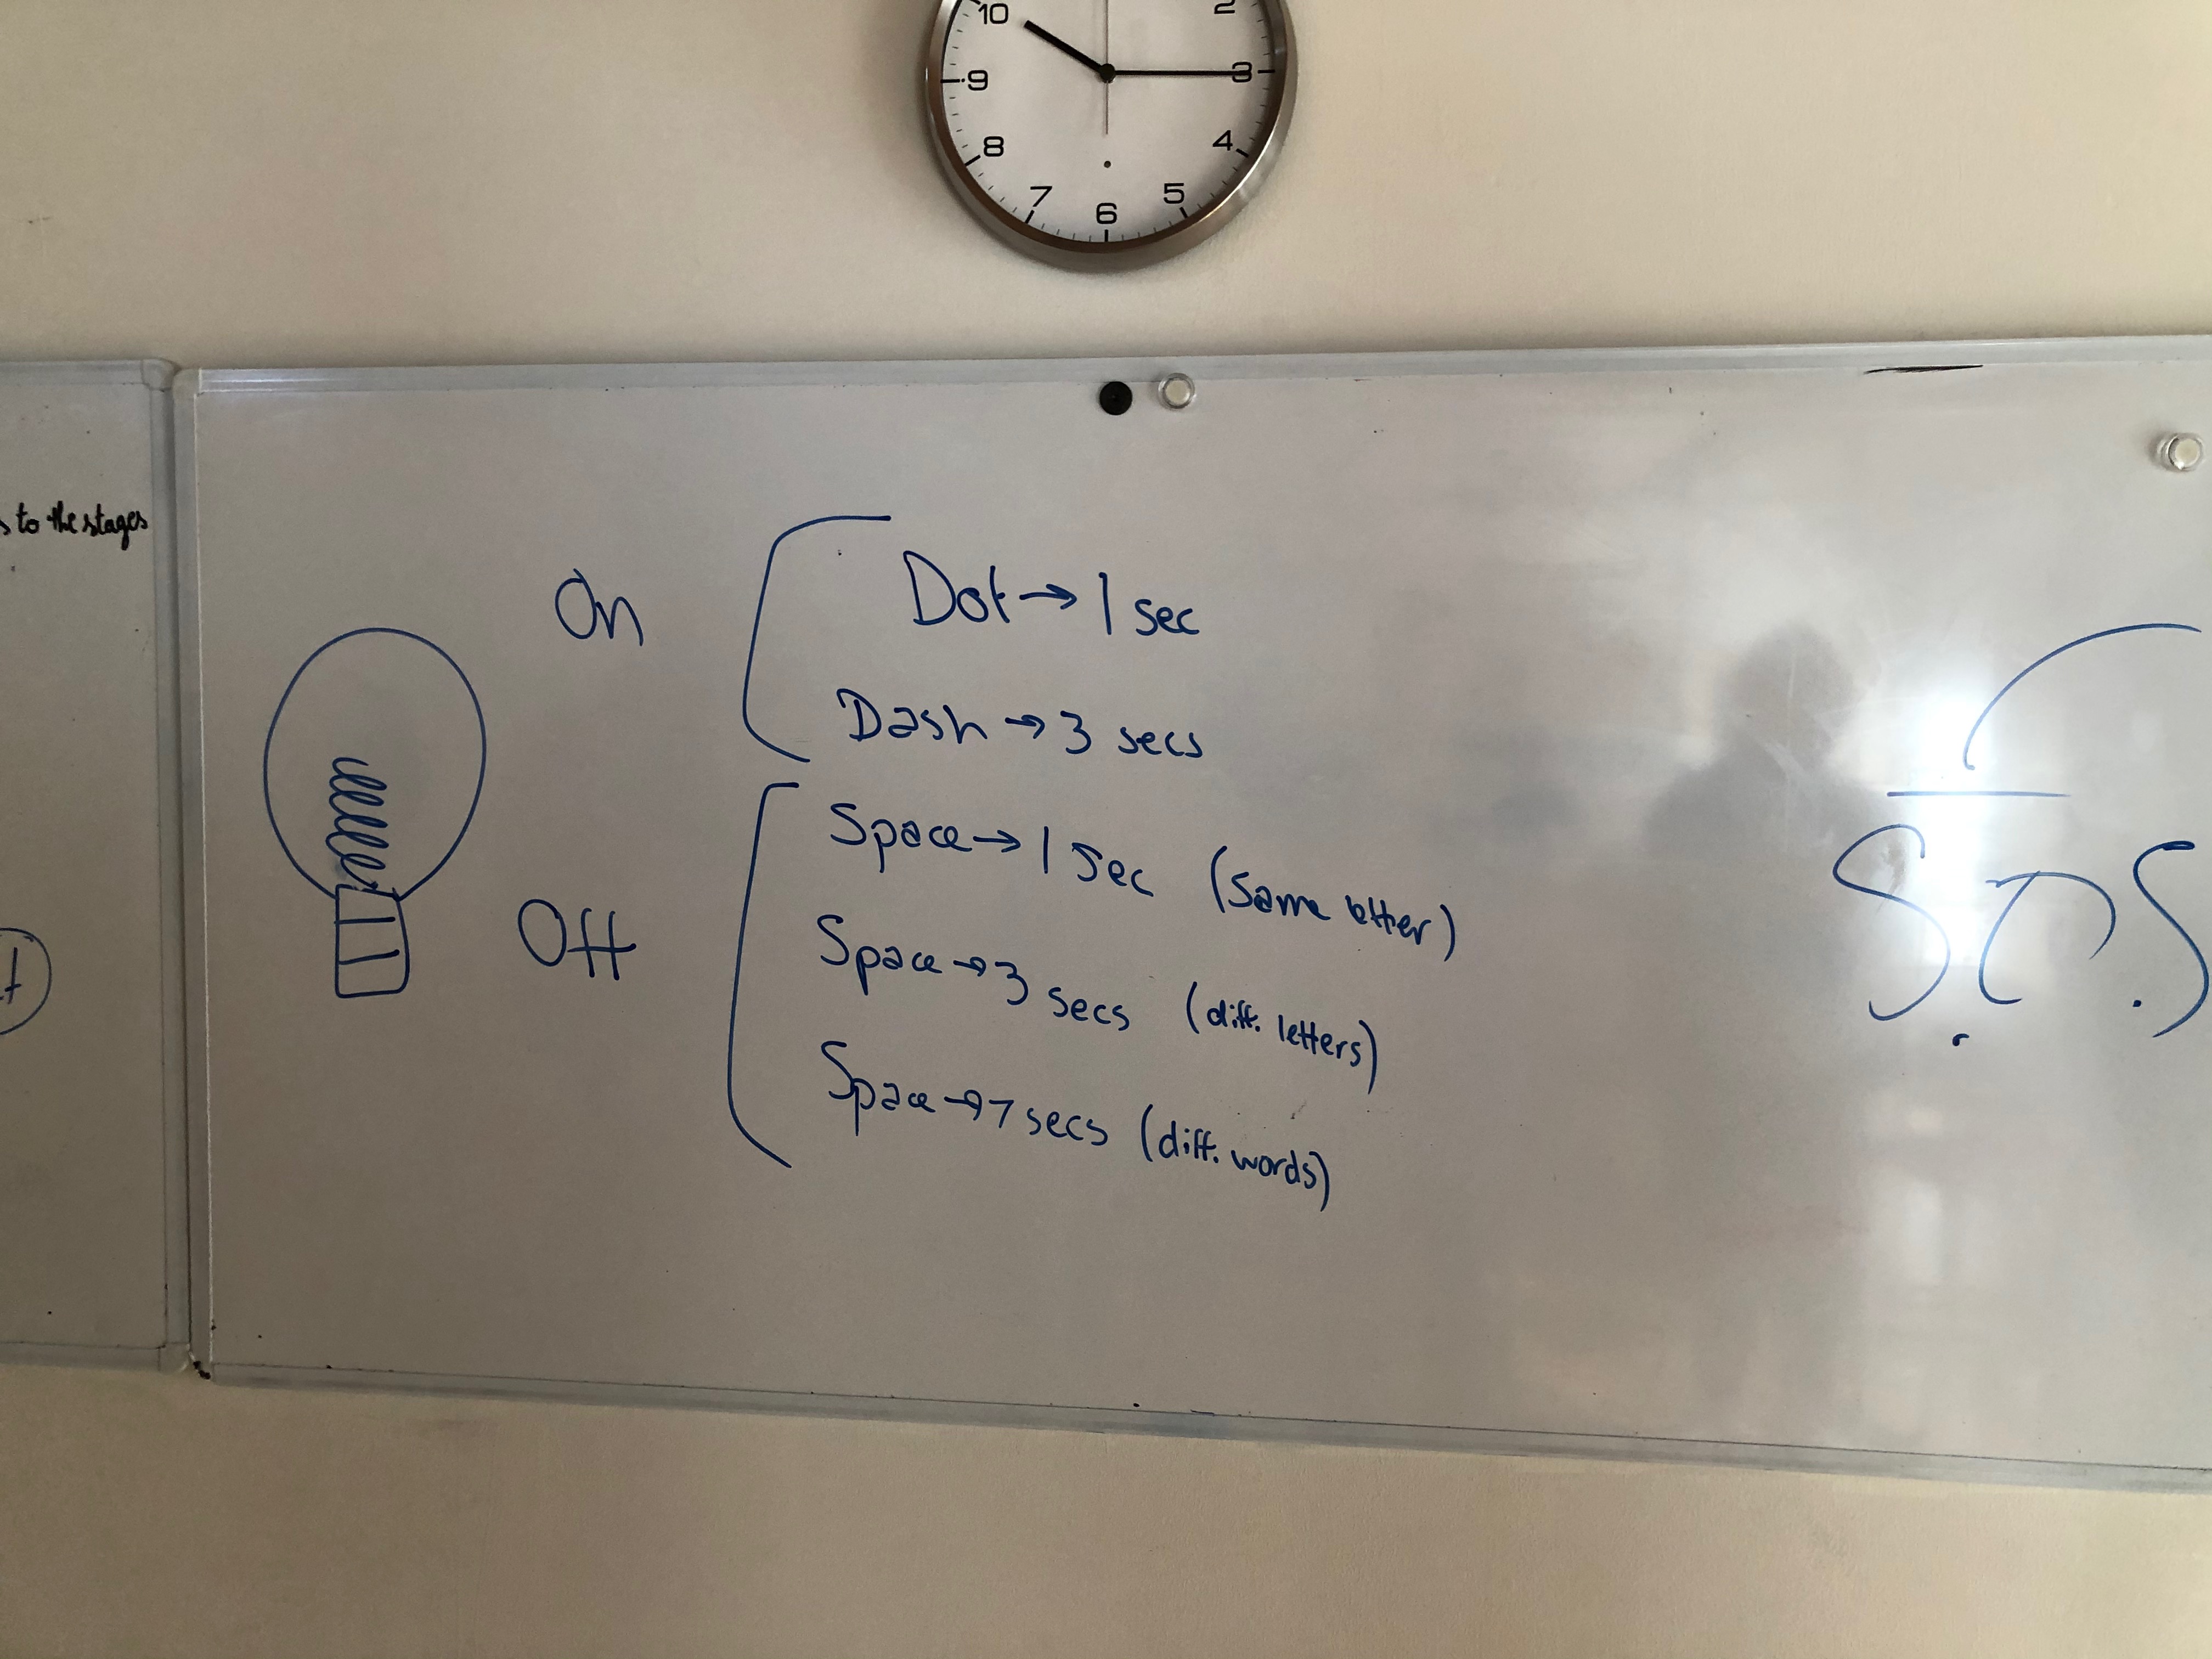 10
2
9
3
8
4
7
5
6
s to the stages
On
Dot → 1 sec
Dash → 3 secs
Off
Space → 1 sec (same letter)
Space → 3 secs (diff. letters)
Space → 7 secs (diff. words)
S.O.S